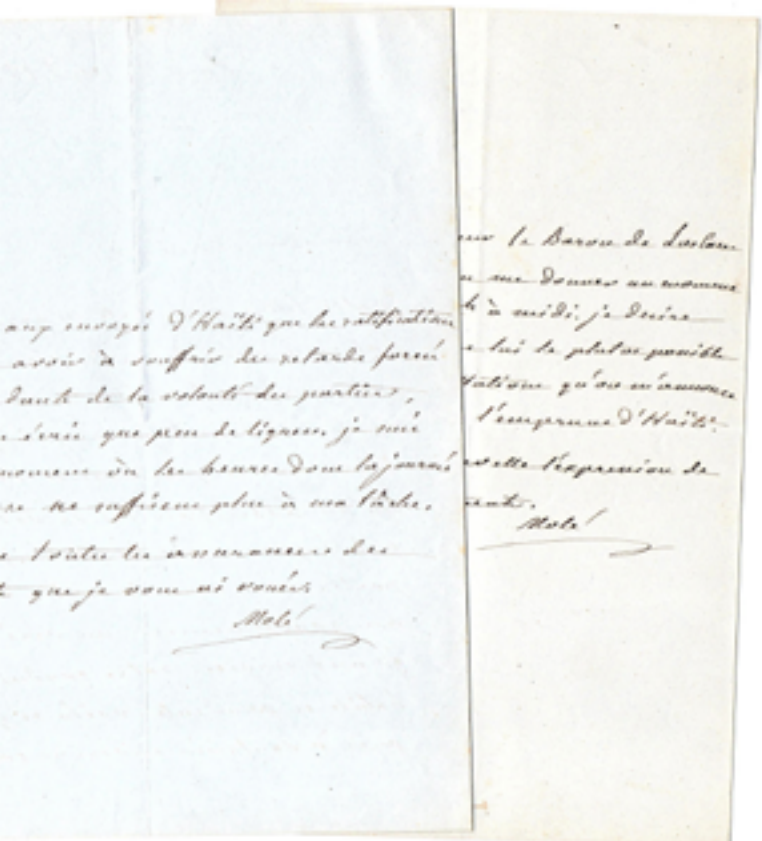 aux envoyés d'Haïti que les ratifications
avoir à souffrir des retards forcés
dants de la volonté des parties,
que peu de lignes. je suis
moment où les heures dont la journée
ne suffisent plus à ma tâche.
toutes les assurances des
que je vous ai voués.
Molé
le Baron de
me donner un moment
à midi. je desire
lui le plutot possible
qu'on m'annonce
l'emprunt d'Haïti.
l'expression de
Molé